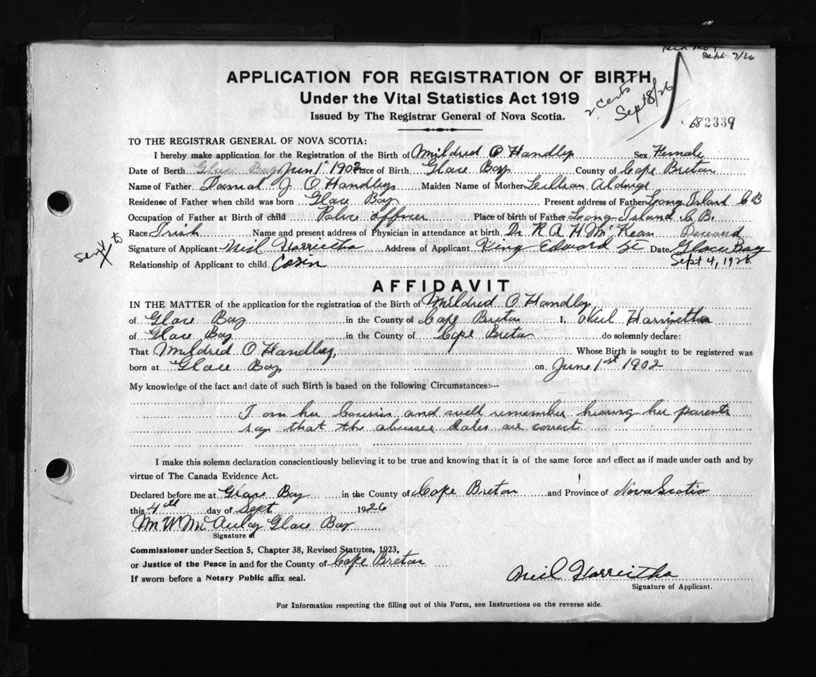 Sept 7/26
APPLICATION FOR REGISTRATION OF BIRTH
2 certs
Sept 8/26
Under the Vital Statistics Act 1919
Issued by The Registrar General of Nova Scotia.
82339
TO THE REGISTRAR GENERAL OF NOVA SCOTIA:
I hereby make application for the Registration of the Birth of Mildred O Handley Sex Female
Date of Birth Glace Bay June 1st 1902 Place of Birth Glace Bay County of Cape Breton
Name of Father J. O Handley Maiden Name of Mother Lillian
Residence of Father when child was born Glace Bay Present address of Father Long Island C B
Occupation of Father at Birth of child Police Officer Place of birth of Father Long Island C.B.
Race Irish Name and present address of Physician in attendance at birth Dr. R A H McKean Deceased
Send to
Signature of Applicant Neil Address of Applicant King Edward St Date Glace Bay
Relationship of Applicant to child Cosin Sept 4, 1926
AFFIDAVIT
IN THE MATTER of the application for the registration of the Birth of Mildred O Handley
of Glace Bay in the County of Cape Breton I, Neil
of Glace Bay in the County of Cape Breton do solemnly declare:
That Mildred O Handley, Whose Birth is sought to be registered was
born at Glace Bay on June 1st 1902
My knowledge of the fact and date of such Birth is based on the following Circumstances:--
I am her Cousin and well remember hearing her parents
say that the dates are correct
I make this solemn declaration conscientiously believing it to be true and knowing that it is of the same force and effect as if made under oath and by
virtue of The Canada Evidence Act.
Declared before me at Glace Bay in the County of Cape Breton and Province of Nova Scotia
this 4th day of Sept 1926
M W McAulay Glace Bay
Signature of
Commissioner under Section 5, Chapter 38, Revised Statutes, 1923,
or Justice of the Peace in and for the County of Cape Breton
If sworn before a Notary Public affix seal.
Neil
Signature of Applicant.
For Information respecting the filling out of this Form, see Instructions on the reverse side.